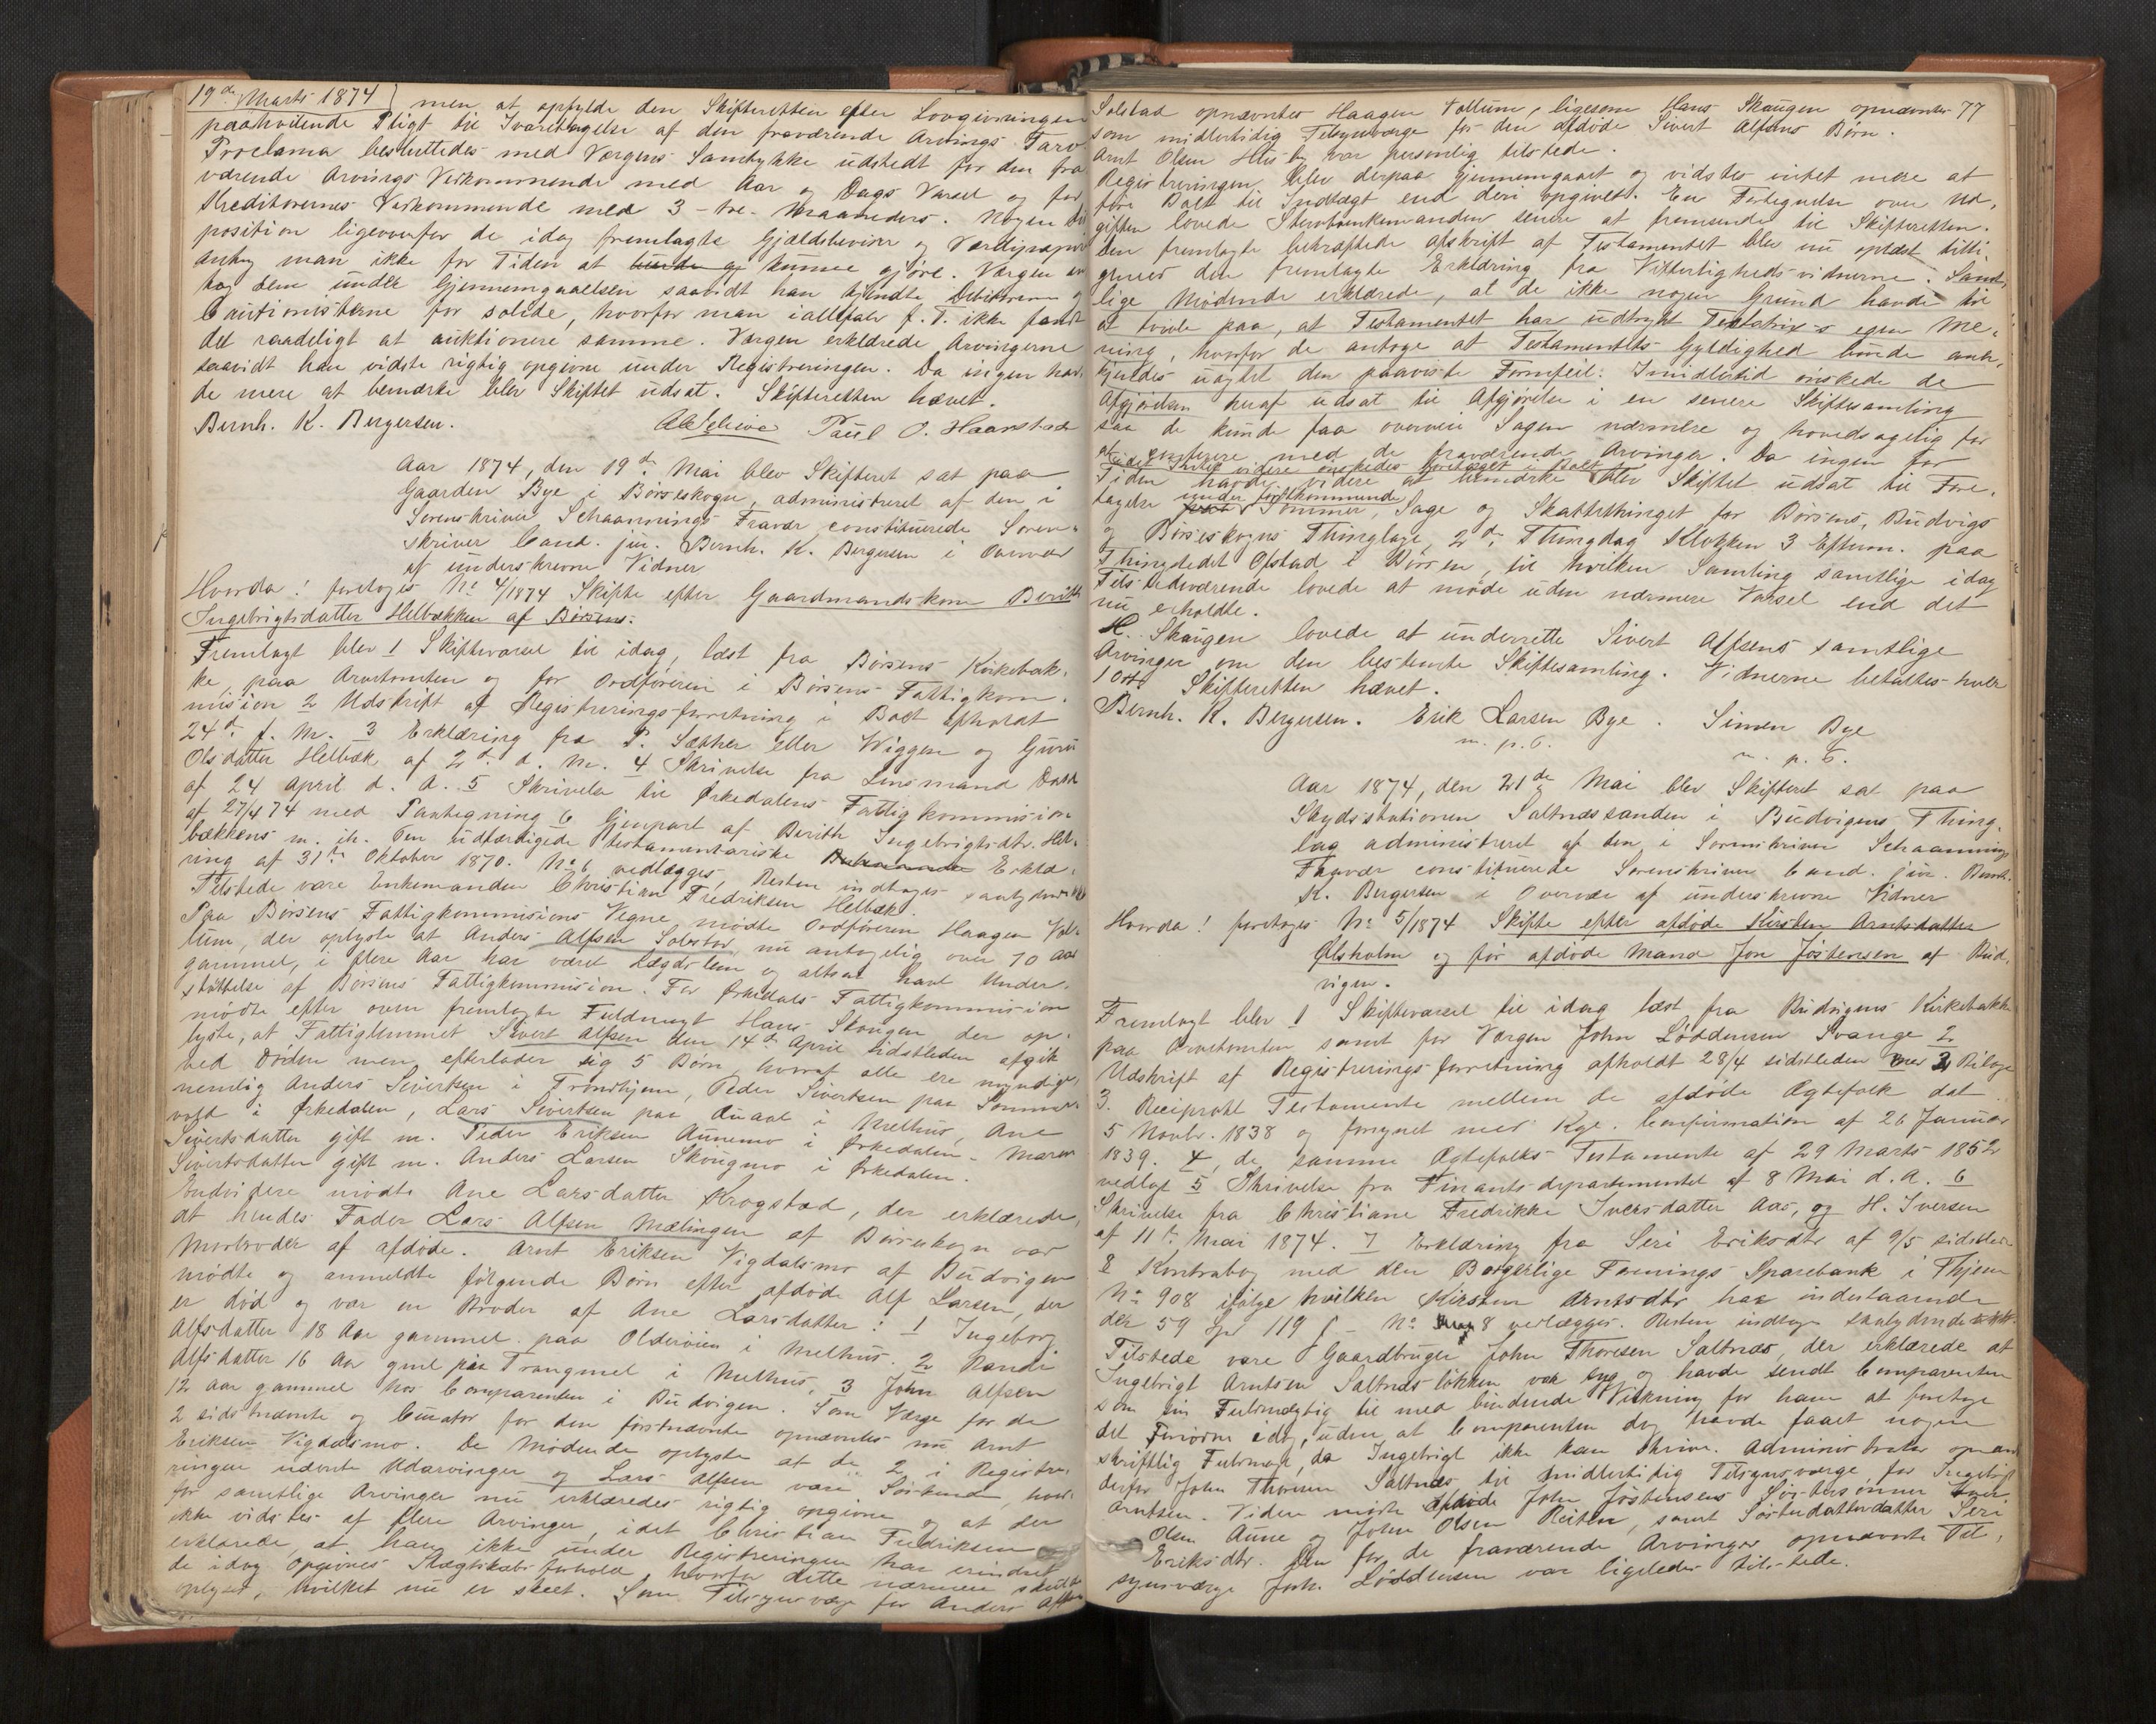 19de Marts 1874 men at opfylde den Skifteretten efter Lovgivningen
paahvilende Pligt til Ivaretagelse af den fraværende Arvings Tarv
Proclama besluttedes med Værgens Samtykke udstedt for den fra
værende Arvings Vedkommende med Aar og Dags Varsel og for
Kreditorernes Vedkommende med 3 - tre - Maaneders. Nogen Dis
position ligeoverfor de idag fremlagte Gjældsbeviser og Værdipapirer
ansaa man ikke for Tiden at kunne gjøre. Værgen an
tog dem under Gjennemgaaelsen saavidt han kjendte Debitorerne og
Cautionisterne for solide, hvorfor man i alfald f. T. ikke fandt
det raadeligt at auktionere samme. Værgen erklærede Arvingerne
saavidt han vidste rigtig opgivne under Registreringen. Da ingen hav
de mere at bemærke blev Skiftet udsat. Skifteretten hævet.
Bernh. K. Bergersen. Paul O. Haanstad
Aar 1874, den 19de Mai blev Skifteret sat paa
Gaarden Bye i Børseskogn, administreret af den i
Sorenskriver Schaannings Fravær constituerede Soren-
skriver Cand. jur. Bernh. K. Bergersen i Overvær
af underskrevne Vidner
Hvorda! foretoges No 4/1874 Skifte efter Gaardmandskone Berith
Ingebrigtsdatter Helbækken af Børsen.
Fremlagt blev 1 Skiftevarsel til idag, læst fra Børsens Kirkebak-
ke, paa Arvetomten og for Ordføreren i Børsens Fattigkom-
mision 2 Udskrift af Registreringsforretning i Boet afholdt
24de f. M. 3 Erklæring fra P. Sæther eller Wiggen og Guru
Olsdatter Helbæk af 2de d. M. 4 Skrivelse fra Lensmand
af 24 April d. A. 5 Skrivelse til Ørkedalens Fattigkommision
af 27/4 74 med Paategning 6 Gjenpart af Berith Ingebrigtsdtr. Hel-
bækkens m. fl. den udfærdigede testamentariske Erklæ-
ring af 31te Oktober 1870. No 6 vedlægges, Resten indtages
Tilstede vare Enkemanden Christian Fredriksen Helbæk.
Paa Børsens Fattigkommisions Vegne mødte Ordføreren Haagen Vol-
lum, der oplyste at Anders Alfsen Solstad nu antagelig over 70 Aar
gammel, i flere Aar har været Lægdslem og altsaa havt Under-
støttelse af Børsens Fattigkommision. For Ørkedals Fattigkommision
mødte efter oven fremlagte Fuldmagt Hans Skougen der op-
lyste, at Fattiglemmet Sivert Alfsen den 14de April sidstleden afgik
ved Døden men efterlader sig 5 Børn, hvoraf alle ere myndige,
nemlig Anders Sivertsen i Trondhjem, Peder Sivertsen paa
vold i Ørkedalen, Lars Sivertsen paa Qvaal i Melhus, Ane
Sivertsdatter gift m. Peder Eriksen Aunemo i Ørkedalen - Maren
Sivertsdatter gift m. Anders Larsen Skougmo i Ørkedalen.
Endvidere mødte Ane Larsdatter Krogstad, der erklærede,
at hendes Fader Lars Alfsen Mælingen af Børseskogn var
Morbroder af afdøde. Arnt Eriksen Vigdalsmo af Budvigen
mødte og anmeldte følgende Børn efter afdøde Alf Larsen, der
er død og var en Broder af Ane Larsdatter: 1 Ingeborg
Alfsdatter 18 Aar gammel paa Olderøien i Melhus. 2 Randi
Alfsdatter 16 Aar gml paa Trangmel i Melhus, 3 John Alfsen
12 Aar gammel hos Comparenten i Budvigen. Som Værge for de
2 sidstnævnte og Curator for den førstnævnte opnævntes nu Arnt
Eriksen Vigdalsmo. De Mødende oplyste at de 2 i Registre-
ringen nævnte Udarvinger og Lars Alfsen vare Søskende, hvor-
for samtlige Arvinger nu erklæredes rigtig opgivne og at der
ikke vidstes af flere Arvinger, idet Christian Fredriksen
erklærede, at han ikke under Registreringen har erindret
de idag opgivnes Slægtskabsforhold, hvorfor dette nærmere skulde
oplyses, hvilket nu er skeet. Som Tilsynsværge for Anders Alfsen
Solstad opnævntes Haagen Vollum, ligesom Hans Skaugen opnævntes 77
som midlertidig Tilsynsværge for den afdøde Sivert Alfsens Børn.
Arnt Olsen Husby var personlig tilstede.
Registreringen blev derpaa gjennemgaaet og vidstes intet mere at
føre Boet til Indtægt end deri opgivet. En Fortegnelse over Ud-
giften lovede Stervboenkemanden senere at fremsende til Skifteretten.
Den fremlagte bekræftede Afskrift af Testamentet blev nu oplæst tilli-
gemed den fremlagte Erklæring fra Vitterlighedsvidnerne. Samt-
lige Mødende erklærede, at de ikke nogen Grund havde til
at tvivle paa, at Testamentet har udtrykt Testatrix's egen Me-
ning, hvorfor de antoge at Testamentets Gyldighed burde aner-
kjendes uagtet den paaviste Formfeil. Imidlertid ønskede de
Afgjørelsen heraf udsat til Afgjørelse i en senere Skiftesamling
saa de kunde faa overveie Sagen nærmere og hovedsagelig for
at conferere med de fraværende Arvinger. Da ingen for
eller Intet videre ønskedes foretaget i Boet
Tiden havde videre at bemærke blev Skiftet udsat til Fore-
tagelse under førstkommende Sommer, Sage og Skattethinget for Børsens, Budvigs
og Børseskogns Thinglag, 2de Thingdag Klokken 3 Efterm. paa
Thingstedet Ofstad i Børsen, til hvilken Samling samtlige idag
Tilstedeværende lovede at møde uden nærmere Varsel end det
nu erholdte.
H. Skaugen lovede at underrette Sivert Alfsens samtlige
Arvinger om den bestemte Skiftesamling. Vidnerne betaltes hver
1 Ort. Skifteretten hævet.
Bernh. K. Bergersen. Erik Larsen Bye. Simen Bye
m. p. P. m. p. P.
Aar 1874, den 21de Mai blev Skifteret sat paa
Skydsstationen Saltnæssanden i Budvigens Thing-
lag administreret af den i Sorenskriver Schaannings
Fravær constituerede Sorenskriver Cand. jur. Bernh.
K. Bergersen i Overvær af underskrevne Vidner
Hvorda! foretoges No 5/1874 Skifte efter afdøde Kirsten Arntsdatter
Ølsholm og før afdøde Mand Jon Jostensen af Bud-
vigen.
Fremlagt blev 1 Skiftevarsel til idag læst fra Budvigens Kirkebakke
paa Arvetomten samt for Værgen John Løddensen Svange 2
Udskrift af Registreringsforretning afholdt 28/4 sidstleden med 2 Bilage
3. Reciprokt Testamente mellem de afdøde Ægtefolk dat.
5 Novbr. 1838 og forsynet med Kgl. Confirmation af 26 Januar
1839. 4, de samme Ægtefolks Testamente af 29 Marts 1852
vedlagt 5 Skrivelse fra Finantsdepartementet af 8 Mai d. A. 6
Skrivelse fra Christiane Fredrikke Iversdatter Aas, og H. Iversen
af 11te Mai 1874. 7 Erklæring fra Seri Eriksdtr af 9/5 sidstleden
8 Kontrabog med den Borgerlige Forenings Sparebank i Thjem
No 908 ifølge hvilken Kirsten Arntsdtr har indestaaende
der 59 Spd 119 ß - No 8 vedlægges. Resten indtages
Tilstede vare Gaardbruger John Thoresen Saltnæs, der erklærede at
Ingebrigt Arntsen Saltnæsløkken var syg og havde sendt Comparenten
som sin Fuldmægtig til med bindende Virkning for ham at foretage
det Fornødne idag, uden at Comparenten dog havde faaet nogen
skriftlig Fuldmagt, da Ingebrigt ikke kan skrive. Administrator opnævnte
derfor John Thoresen Saltnæs til midlertidig Tilsynsværge for Ingebrigt
Arntsen. Videre mødte afdøde John Jostensens Søstersønner
Olsen Aune og John Olsen Reiten, samt Søsterdatterdatter Seri
Eriksdtr. Den for de fraværende Arvinger opnævnte Til-
synsværge Joh. Løddensen var ligeledes tilstede.